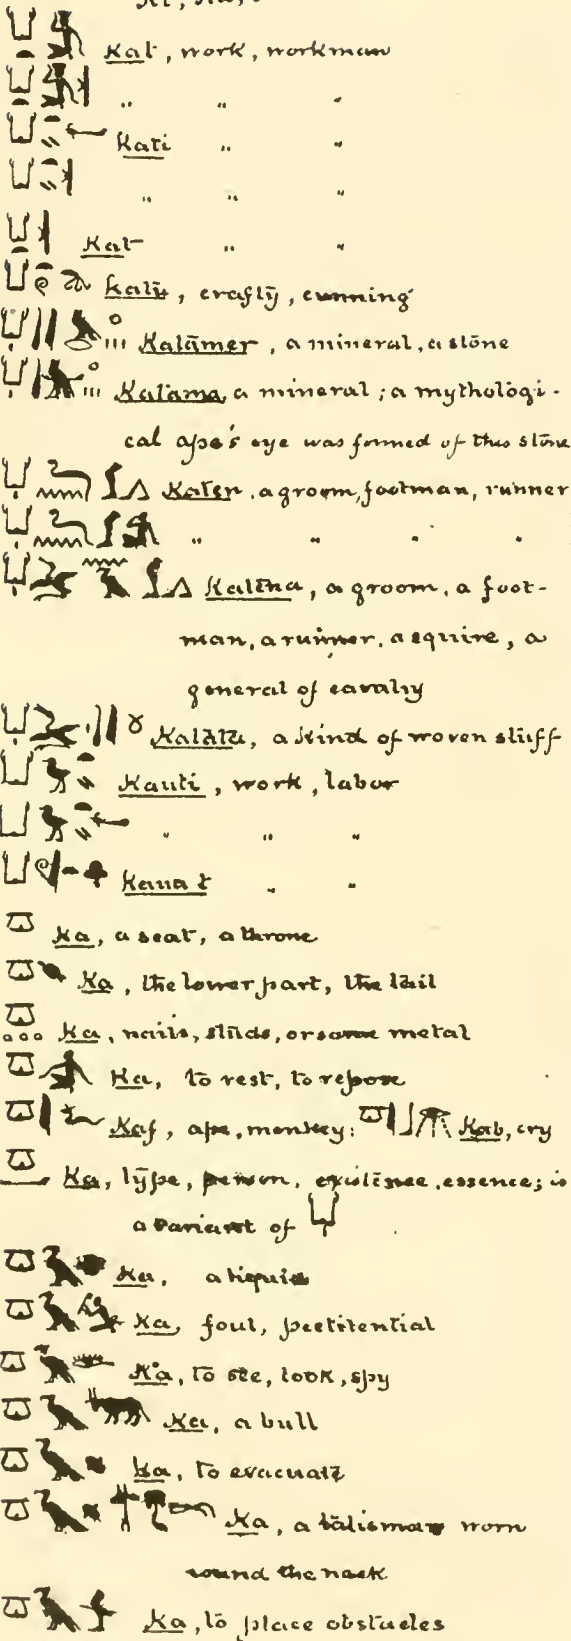 Kat, work, workman
" " "
Kati " "
" " "
Kat " "
Katu, crafty, cunning
Katamer, a mineral, a stone
Katama, a mineral; a mythologi-
cal ape's eye was formed of this stone
Katen, a groom, footman, runner
" " " "
Katena, a groom, a foot-
man, a runner, a squire, a
general of cavalry
Katatu, a kind of woven stuff
Kauti, work, labor
" " "
Kauat " "
Ka, a seat, a throne
Ka, the lower part, the tail
Ka, nails, studs, or some metal
Ka, to rest, to repose
Kaf, ape, monkey; Kab, cry
Ka, type, person, existence, essence; is
a variant of
Ka, a liquid
Ka, foul, pestitential
Ka, to see, look, spy
Ka, a bull
Ka, to evacuate
Ka, a talisman worn
round the neck
Ka, to place obstacles